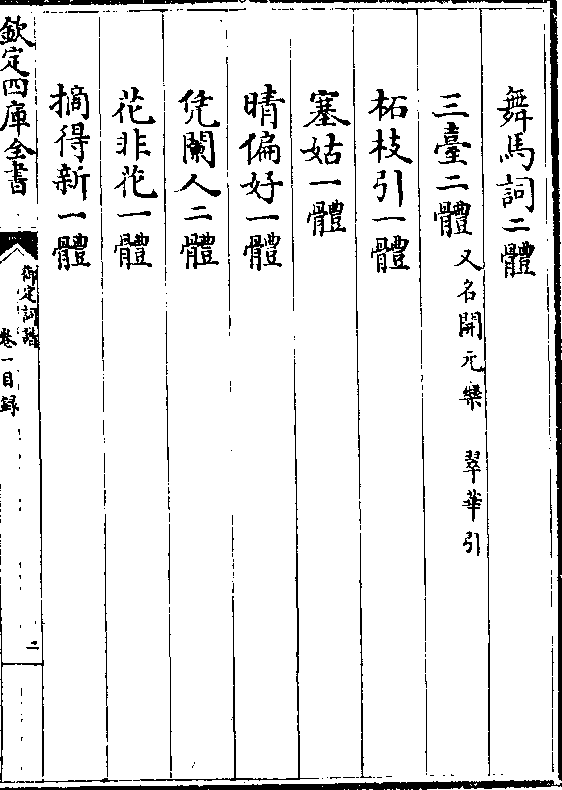 舞馬詞二體
三臺二體又名開元樂 翠華引
柘枝引一體
塞姑一體
晴偏好一體
凭闌人二體
花非花一體
摘得新一體
欽定四庫全書
御定詞譜
卷一目録
二